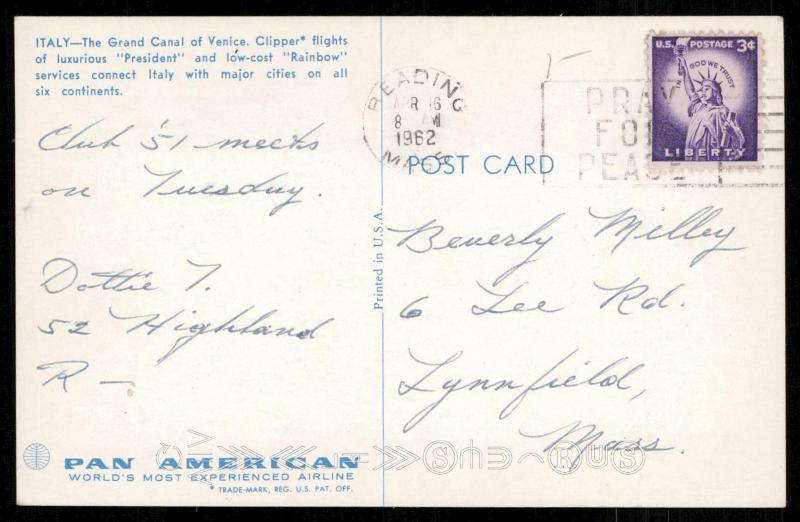 ITALY—The Grand Canal of Venice. Clipper* flights
of luxurious "President" and low-cost "Rainbow"
services connect Italy with major cities on all
six continents.
Club '51 meets
on Tuesday.
Dottie T.
52 Highland
R —
PAN AMERICAN
WORLD'S MOST EXPERIENCED AIRLINE
* TRADE-MARK, REG. U.S. PAT. OFF.
Printed in U.S.A.
READING
APR 16
8 AM
1962
MASS
PRAY
FOR
PEACE
U.S. POSTAGE 3¢
IN GOD WE TRUST
LIBERTY
POST CARD
Beverly Milley
6 Lee Rd.
Lynnfield,
Mass.